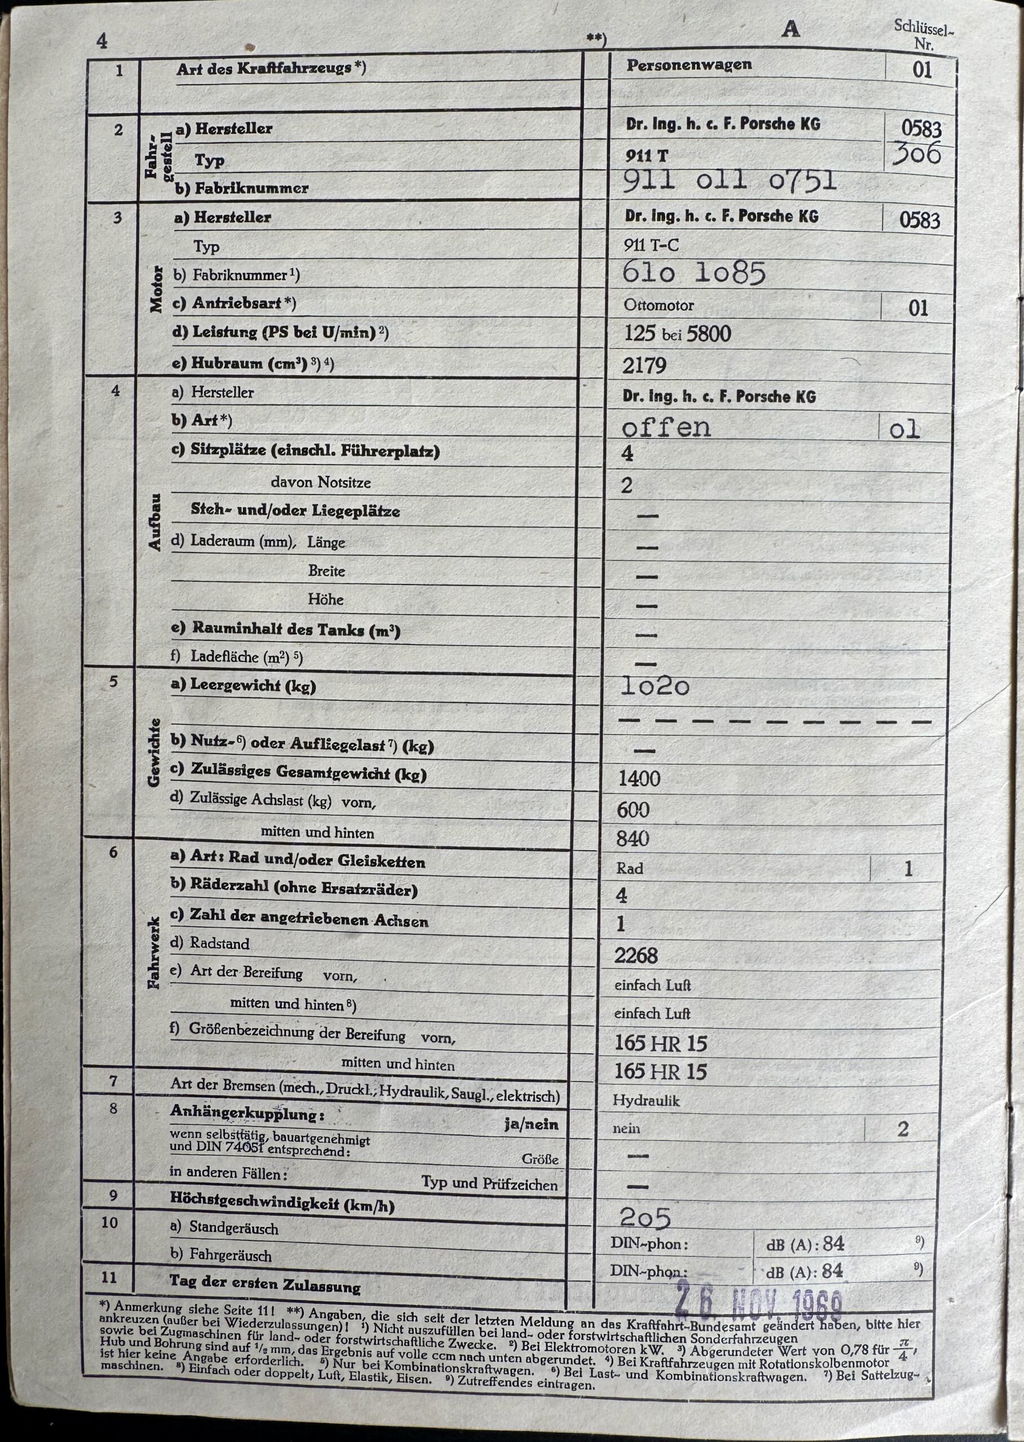 4 **) A Schlüssel-Nr.
1 Art des Kraftfahrzeugs *) Personenwagen 01
2 Fahrgestell a) Hersteller Dr. Ing. h. c. F. Porsche KG 0583
Typ 911 T 306
b) Fabriknummer 911 o11 o751
3 Motor a) Hersteller Dr. Ing. h. c. F. Porsche KG 0583
Typ 911 T-C
b) Fabriknummer ¹) 61o 1o85
c) Antriebsart *) Ottomotor 01
d) Leistung (PS bei U/min) ²) 125 bei 5800
e) Hubraum (cm³) ³) ⁴) 2179
4 Aufbau a) Hersteller Dr. Ing. h. c. F. Porsche KG
b) Art *) offen o1
c) Sitzplätze (einschl. Führerplatz) 4
davon Notsitze 2
Steh- und/oder Liegeplätze —
d) Laderaum (mm), Länge —
Breite —
Höhe —
e) Rauminhalt des Tanks (m³) —
f) Ladefläche (m²) ⁵) —
5 Gewichte a) Leergewicht (kg) 1o2o
— — — — — — — — — — — —
b) Nutz- ⁶) oder Aufliegelast ⁷) (kg) —
c) Zulässiges Gesamtgewicht (kg) 1400
d) Zulässige Achslast (kg) vorn, 600
mitten und hinten 840
6 Fahrwerk a) Art: Rad und/oder Gleisketten Rad 1
b) Räderzahl (ohne Ersatzräder) 4
c) Zahl der angetriebenen Achsen 1
d) Radstand 2268
e) Art der Bereifung vorn, einfach Luft
mitten und hinten ⁸) einfach Luft
f) Größenbezeichnung der Bereifung vorn, 165 HR 15
mitten und hinten 165 HR 15
7 Art der Bremsen (mech., Druckl., Hydraulik, Saugl., elektrisch) Hydraulik
8 Anhängerkupplung: ja/nein nein 2
wenn selbsttätig, bauartgenehmigt
und DIN 74051 entsprechend: Größe —
in anderen Fällen: Typ und Prüfzeichen —
9 Höchstgeschwindigkeit (km/h) 2o5
10 a) Standgeräusch DIN-phon: dB (A): 84 ⁹)
b) Fahrgeräusch DIN-phon: dB (A): 84 ⁹)
11 Tag der ersten Zulassung 26. NOV. 1969
*) Anmerkung siehe Seite 11! **) Angaben, die sich seit der letzten Meldung an das Kraftfahrt-Bundesamt geändert haben, bitte hier
ankreuzen (außer bei Wiederzulassungen)! ¹) Nicht auszufüllen bei land- oder forstwirtschaftlichen Sonderfahrzeugen
sowie bei Zugmaschinen für land- oder forstwirtschaftliche Zwecke. ²) Bei Elektromotoren kW. ³) Abgerundeter Wert von 0,78 für π/4,
Hub und Bohrung sind auf ½ mm, das Ergebnis auf volle ccm nach unten abgerundet. ⁴) Bei Kraftfahrzeugen mit Rotationskolbenmotor
ist hier keine Angabe erforderlich. ⁵) Nur bei Kombinationskraftwagen. ⁶) Bei Last- und Kombinationskraftwagen. ⁷) Bei Sattelzug-
maschinen. ⁸) Einfach oder doppelt, Luft, Elastik, Eisen. ⁹) Zutreffendes eintragen.